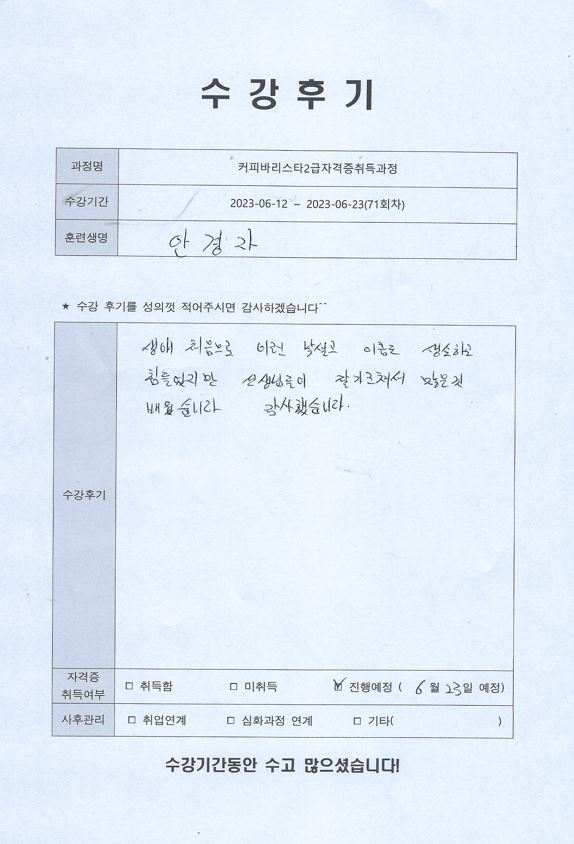 수강후기
과정명 커피바리스타2급자격증취득과정
수강기간 2023-06-12 ~ 2023-06-23(71회차)
훈련생명 안경자
★ 수강 후기를 성의껏 적어주시면 감사하겠습니다~~
생애 처음으로 이런 낯설고 이름도 생소하고
힘들었지만 선생님들이 잘가르쳐서 많은것
배웠습니다 감사했습니다.
수강후기
자격증
취득여부 □ 취득함 □ 미취득 ☑ 진행예정 ( 6월 23일 예정)
사후관리 □ 취업연계 □ 심화과정 연계 □ 기타( )
수강기간동안 수고 많으셨습니다!